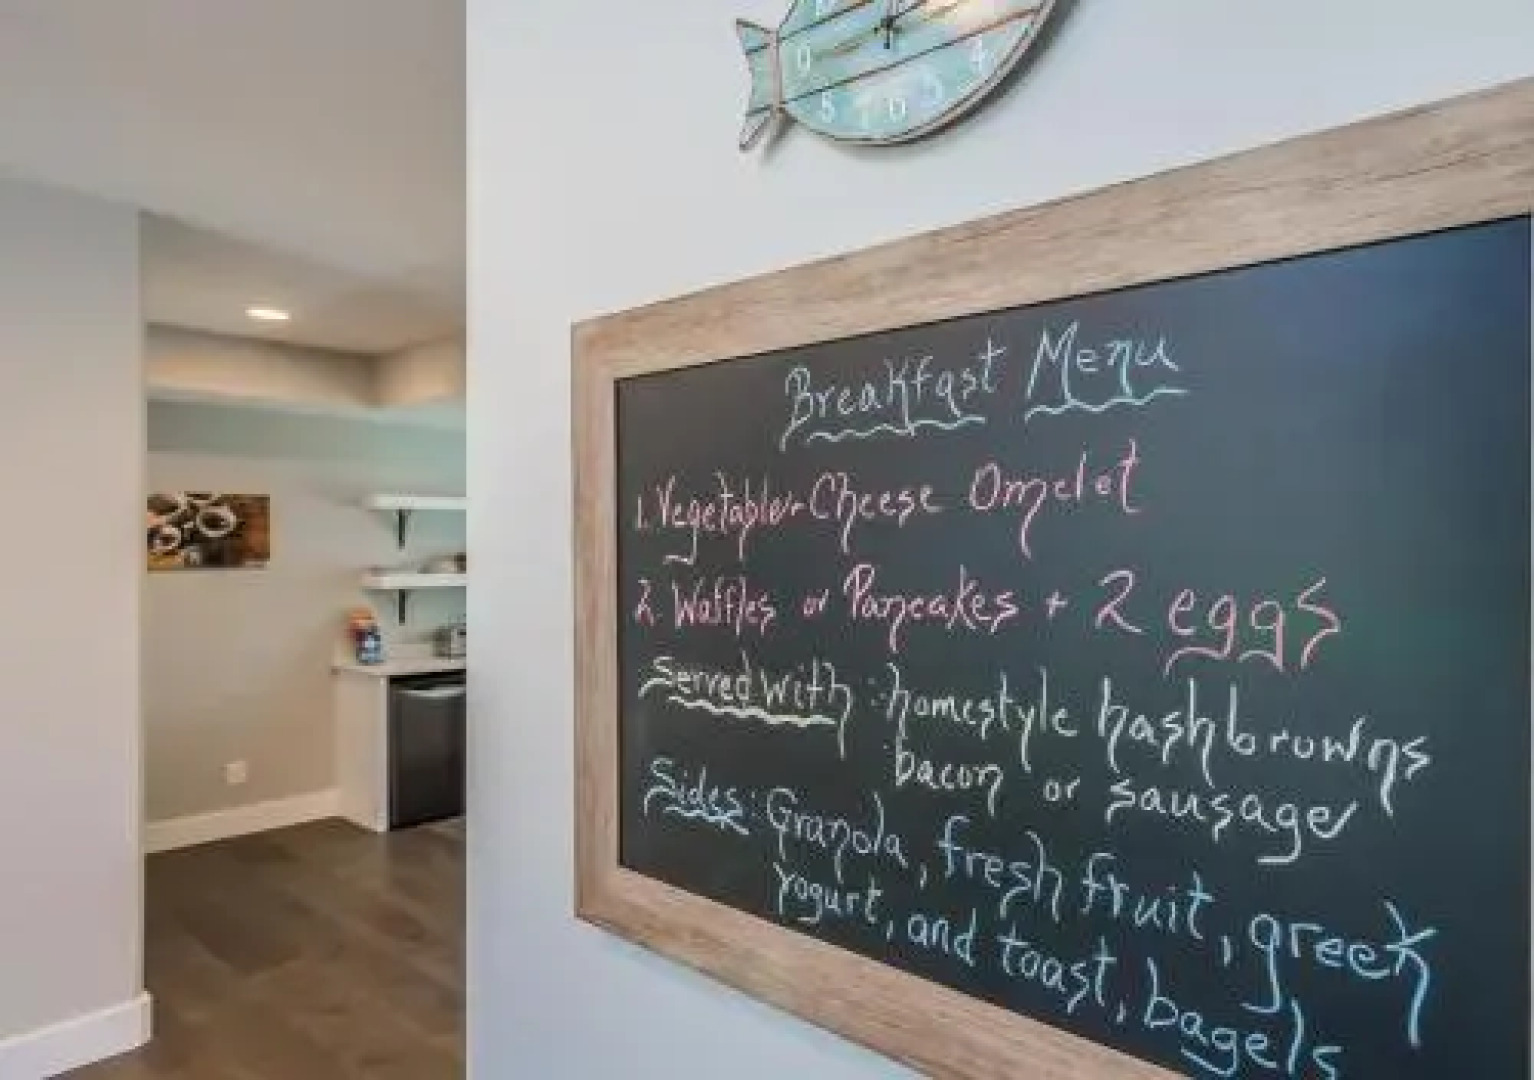 Breakfast Menu
1. Vegetable + Cheese Omelet
2. Waffles or Pancakes + 2 eggs
Served with: homestyle hashbrowns
bacon or sausage
Sides: Granola, fresh fruit, greek
yogurt, and toast, bagels